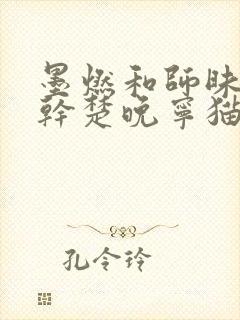 墨燃和師昧
幹楚晚寧猫
孔令玲